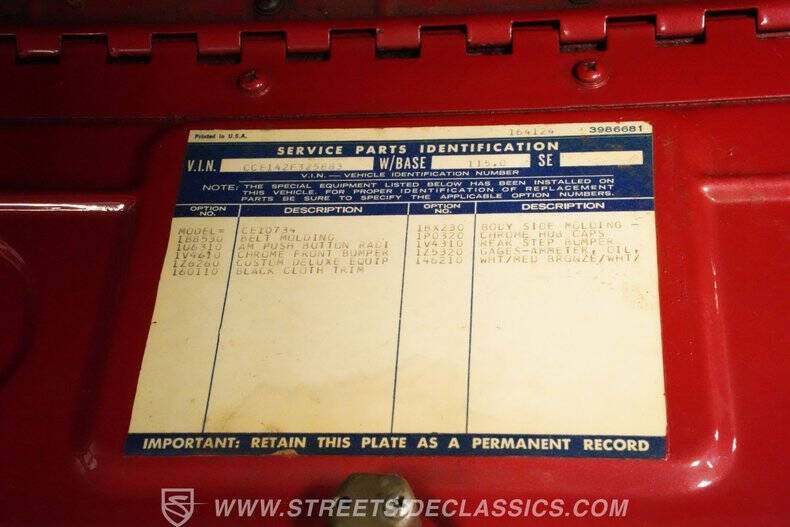 Printed in U.S.A. 164124 3986681
SERVICE PARTS IDENTIFICATION
V.I.N. CCE142F325883 W/BASE 115.0 SE
V.I.N. — VEHICLE IDENTIFICATION NUMBER
NOTE: THE SPECIAL EQUIPMENT LISTED BELOW HAS BEEN INSTALLED ON
THIS VEHICLE. FOR PROPER IDENTIFICATION OF REPLACEMENT
PARTS BE SURE TO SPECIFY THE APPLICABLE OPTION NUMBERS.
OPTION NO. DESCRIPTION OPTION NO. DESCRIPTION
MODEL= CE10734 1BX230 BODY SIDE MOLDING -
1B8530 BELT MOLDING 1P0320 CHROME HUB CAPS
1U6310 AM PUSH BUTTON RADI 1V4310 REAR STEP BUMPER
1V4610 CHROME FRONT BUMPER 1Z5320 GAGES-AMMETER, OIL,
1Z6260 CUSTOM DELUXE EQUIP 146210 WHT/MED BRONZE/WHT/
160110 BLACK CLOTH TRIM
IMPORTANT: RETAIN THIS PLATE AS A PERMANENT RECORD
WWW.STREETSIDECLASSICS.COM